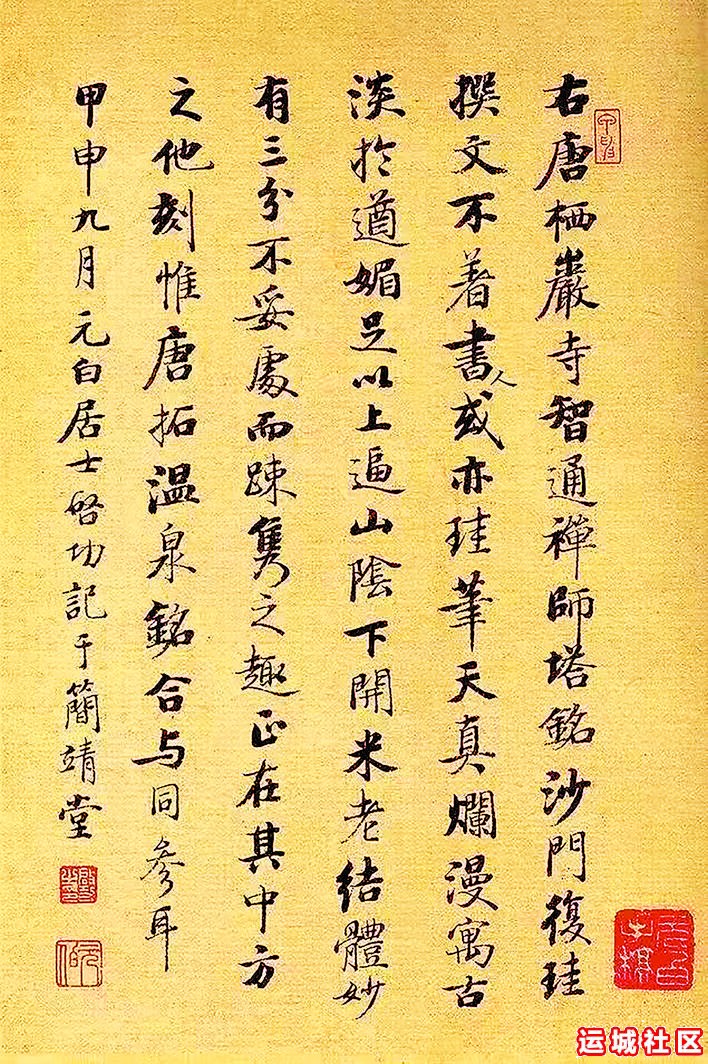 右唐栖巖寺智通禪師塔銘沙門復珪
撰文不著書人或亦珪筆天真爛漫寓古
淡於遒媚足以上逼山陰下開米老結體妙
有三分不妥處而踈雋之趣正在其中方
之他刻惟唐拓温泉銘合与同參耳
甲申九月元白居士啓功記于簡靖堂
运城社区